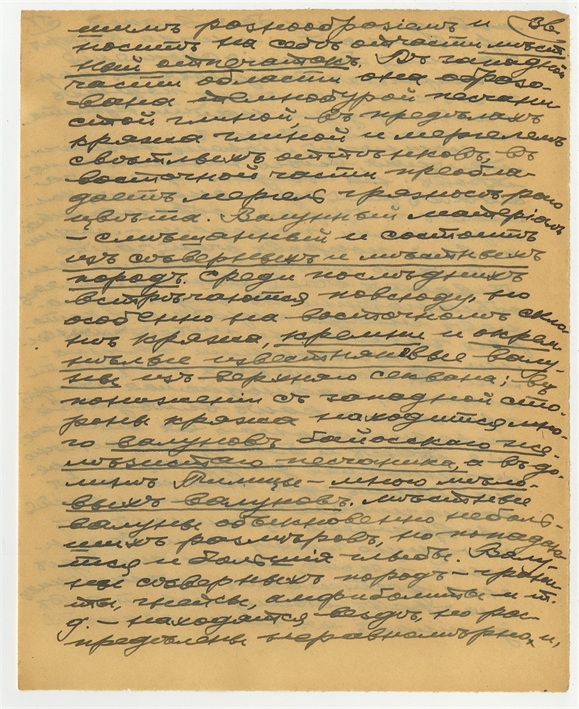 шимъ разнообразіемъ и
носитъ на себѣ отчасти мѣст
ный отпечатокъ. Въ западной
части области она образо-
вана темнобурой песчани
стой глиной, въ предѣлахъ
кряжа глиной и мергелемъ
свѣтлыхъ оттѣнковъ, въ
восточной части преобла-
даетъ мергель грязносѣраго
цвѣта. Валунный матеріалъ
- смѣшанный и состоитъ
изъ сѣверныхъ и мѣстныхъ
породъ. Среди послѣднихъ
встрѣчаются повсюду, но
особенно на восточномъ скло
нѣ кряжа, кремни и окрем
нѣлые известняковые валу-
ны изъ верхняго секвана; въ
пониженіи съ западной сто-
роны кряжа находится мно-
го валуновъ байосскаго же-
лѣзистаго песчаника, а въ до-
линѣ Пилицы - много мѣло-
выхъ валуновъ. Мѣстные
валуны обыкновенно неболь-
шихъ размѣровъ, но попадаю
тся и большія глыбы. Валу-
ны сѣверныхъ породъ - грани
ты, гнейсы, амфиболиты - и т.
д. - находятся вездѣ, но рас
предѣлены неравномѣрно, и,